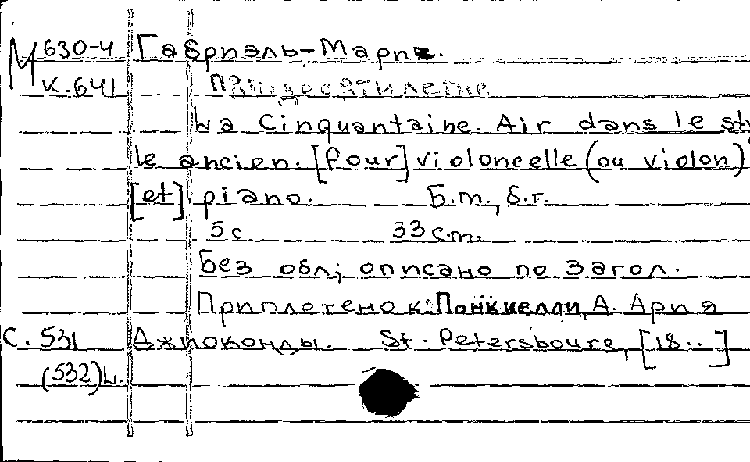 М 630-4 Габриэль-Мари.
К.641 Пятидесятилетие
La Cinquantaine. Air dans le sty
le ancien. [Pour] violoncelle (ou violon)
[et] piano. Б.m., б.г.
5 с. 33 cm.
Без обл; описано по загол.
Приплетено к: Понкиелли, А. Ария
С. 531 Джиоконды. St.-Petersbourg, [18..]
(532) L.